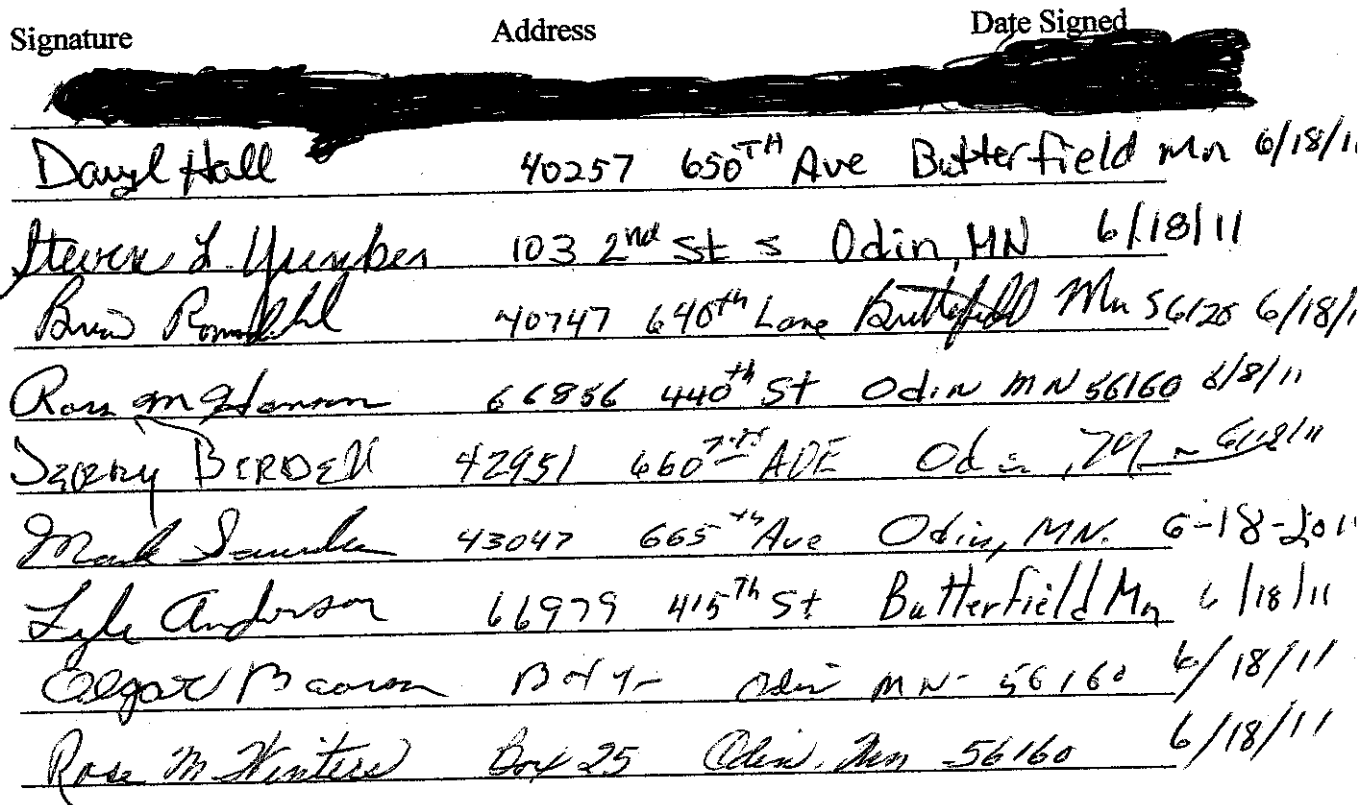 Signature Address Date Signed
Daryl Hall 40257 650TH Ave Butterfield Mn 6/18/1
Steven L. 103 2nd St S Odin, MN 6/18/11
40747 640th Lane Butterfield Mn 56120 6/18/1
Ross M Hanson 66856 440th St Odin MN 56160 6/8/11
42951 660 AVE Odin, 6/18/11
Mark 43047 665th Ave Odin, MN. 6-18-201
Lyle Anderson 66979 415th St Butterfield Mn 6/18/11
Odin MN- 56160 6/18/11
Rose M Winters Box 25 Odin, Mn 56160 6/18/11